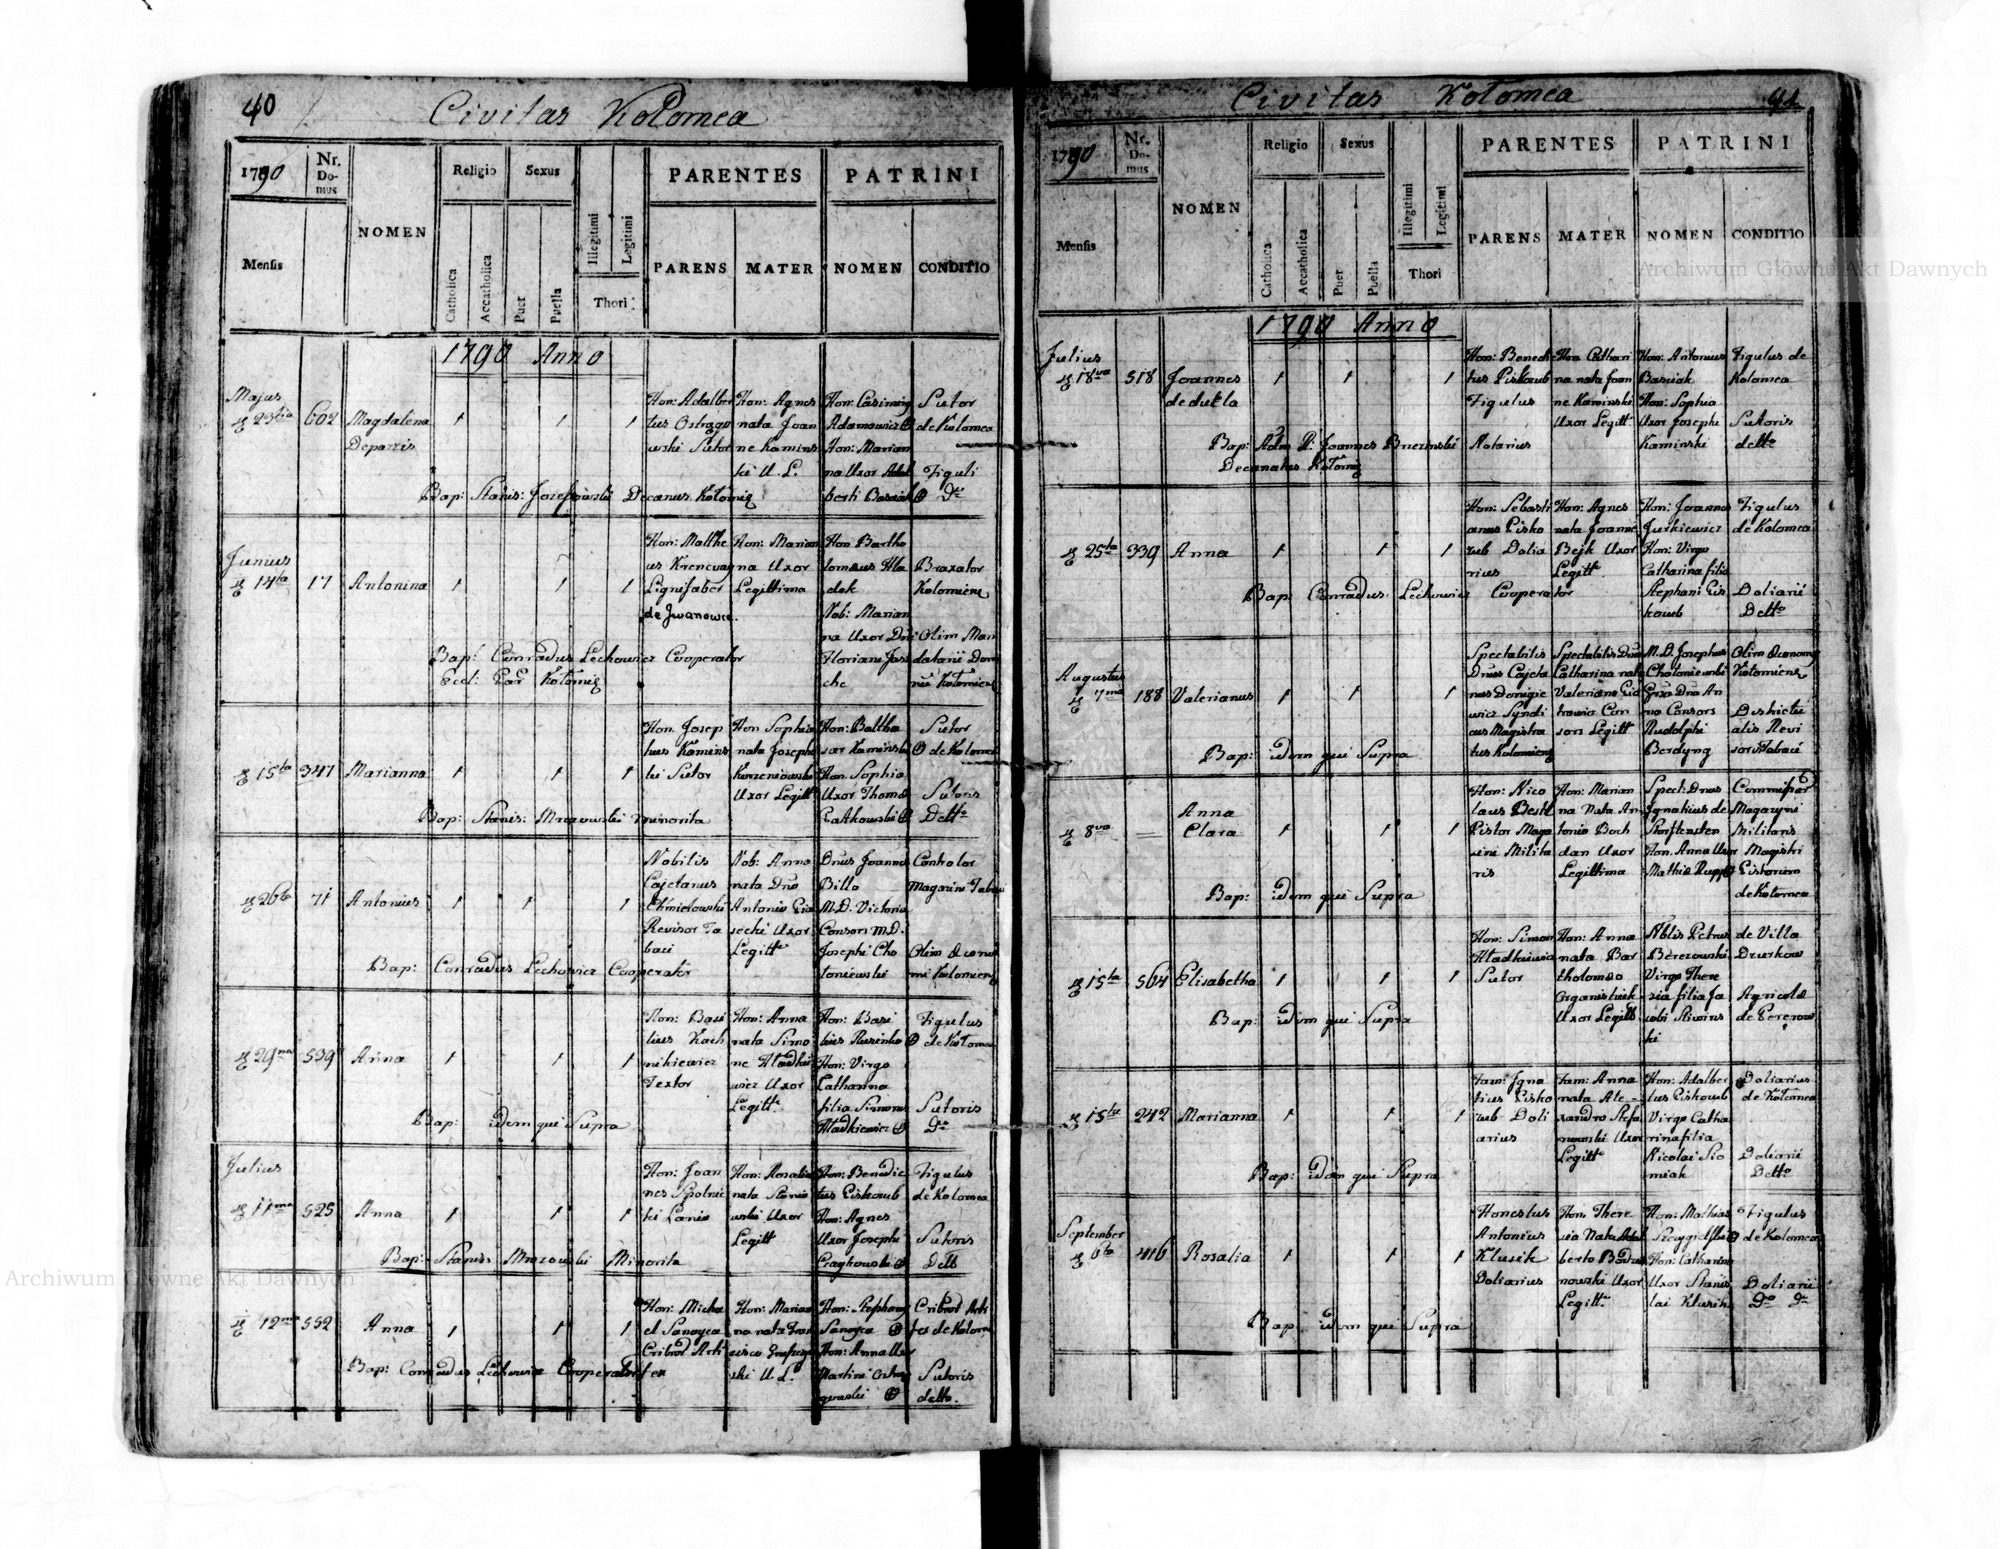 40
Civitas Kołomea
1790
Nr. Domus
Mensis
NOMEN
Religio
Catholica
Accatholica
Sexus
Puer
Puella
Illegitimi
Legitimi
Thori
PARENTES
PARENS
MATER
PATRINI
NOMEN
CONDITIO
1790 Anno
Majus
23tia 602 Magdalena
Deparzis
Hon: Adalber
tus Ostrogo
wski Sutor
Hon: Agnes
nata Joan
ne Kamins
ki U. L.
Hon: Casimirg
Adamowicz
Hon: Marian
na Uxor Adal
berti Basiak
Sutor
de Kolomea
Figuli
Dtt
Bap: Stanis: Josefowski Decanus Kołomig
Junius
14ta 17 Antonina
Hon: Mathe
us Krencway
Lignifaber
de Jwanowce.
Hon: Marian
na Uxor
Legittima
Hon Bartho
lomaus Hla
dek
Nob: Marian
na Uxor Dni
Floriani Jas
che
Braxator
Kolomiens
Olim Man
datarii Dom
nii Kołomiens
Bap: Conradus Lechowicz Cooperator
Eccl: Par Kołomig
15ta 347 Marianna
Hon. Josep
hus Kamins
ki Sutor
Hon Sophia
nata Josepho
Korzeniowski
Uxor Legitt
Hon: Baltha
sar Kaminski
Hon: Sophia
Uxor Thoma
Catkowski
Sutor
de Kolomea
Sutoris
Detto
Bap: Stanis: Mrozowski minorita
26ta 71 Antonius
Nobilis
Cajetanus
Chmielowski
Revisor Ta
baci
Nob: Anna
nata Dno
Antonio Gia
secki Uxor
Legitt
Dnus Joannes
Billo
M.D. Victoria
Consors M.D.
Josephi Cho
toniewski
Controlor
Magazini Tabaci
Olim Œcono
mi Kołomiens
Bap: Conradus Lechowicz Cooperator
29na 539 Anna
Hon: Basi
lius Kach
nikiewicz
Textor
Hon: Anna
nata Simo
ne Hladki
wicz Uxor
Legitt.
Hon: Basi
lius Rusinko
Hon: Virgo
Catharina
filia Simonis
Hladkiewicz
Figulus
de Kołomea
Sutoris
Dtt
Bap: Idem qui Supra
Julius
11ma 525 Anna
Hon: Joan
nes Spolnic
ki Lanio
Hon: Rosalia
nata Stanis
wski Uxor
Legitt
Hon: Benedic
tus Piskozub
Hon: Agnes
Uxor Josephi
Czaykowski
Figulus
de Kolomea
Sutoris
Dett
Bap: Stanis: Mrozowski Minorita
12ma 552 Anna
Hon: Micha
el Sanoyca
Cribror Arti
fex
Hon: Marian
na nata Fran
cisco
ski U. L.
Hon: Stephang
Sanoyca
Hon: Anna Uxor
Martini Ostro
gowski
Cribror Arti
fex de Kolom
Sutoris
detto.
Bap: Conradus Lechowicz Cooperator
Civitas Kołomea
41
1790
Nr. Domus
Mensis
NOMEN
Religio
Catholica
Accatholica
Sexus
Puer
Puella
Illegitimi
Legitimi
Thori
PARENTES
PARENS
MATER
PATRINI
NOMEN
CONDITIO
1790 Anno
Julius
18va 518 Joannes
de dukla
Hon: Benedic
tus Piskozub
Figulus
Hon Cathari
na nata Joan
ne Kaminski
Uxor Legitt.
Hon: Antonius
Basiak
Hon: Sophia
Uxor Josephi
Kaminski
Figulus de
Kolomea
Sutoris
detto
Bap: Adm R: Joannes Brzezinski Notarius
Decanatus Kołomig
25ta 339 Anna
Hon: Sebasti
anus Pisko
zub Dolia
rius
Hon: Agnes
nata Joanne
Bejk Uxor
Legitt.
Hon: Joannes
Jurkiewicz
Hon: Virgo
Catharina filia
Stephani Pis
kozub
Figulus
de Kolomea
Doliarii
Detto
Bap: Conradus Lechowicz Cooperator
Augustus
7ma 188 Valerianus
Spectabilis
Dnus Cajeta
nus Donigie
wicz Syndi
cus Magistra
tus Kolomiens
Spectabilis Dna
Catharina nata
Valeriano Gia
Con
sors Legitt
M.D. Josephus
Choloniewski
Gnra Dna An
na Consors
Rudolphi
Berdyng
Olim Œconom
Kolomiens
Districtu
alis Revi
soris Tabaci
Bap: Idem qui Supra
8va Anna
Clara
Hon: Nico
laus Bestl
Pistor Maga
zini Milita
ris
Hon: Marian
na Nata An
tonio Boch
dan Uxor
Legittima
Spect: Dnus
Ignatius de
Hon. Anna Uxor
Mathia Rupp
Commissar
Magazyni
Militaris
Magistri
Pistorum
de Kolomea
Bap: Idem qui Supra
15ta 564 Elisabetha
Hon: Simon
Hladkiewicz
Sutor
Hon: Anna
nata Bar
tholomeo
Organisciak
Uxor Legitt
Nblis Petrus
Berezowski
Virgo There
sia filia Ja
cobi Slivins
ki
de Villa
Dzurkow
Agricola
de Pererow
Bap: Idem qui Supra
15ta 242 Marianna
Fam: Igna
tius Pisko
zub Doli
arius
Fam: Anna
nata Ale-
xandro Stefa
nowski Uxor
Legitt
Hon: Adalber
tus Piskozub
Virgo Catha
rina filia
Nicolai Sio
miak
Doliarius
de Kolomea
Doliarii
Detto
Bap: Idem qui Supra
September
6ta 416 Rosalia
Honestus
Antonius
Klusik
Doliarius
Hon: There
sia Nata Adal
berto Bodna
nowski Uxor
Legitt.
Hon: Mathias
Hon: Catharina
Uxor Stanis
lai Klusik
Figulus
de Kolomea
Doliarii
Do Do
Bap: Idem qui Supra
Archiwum Główne Akt Dawnych
Archiwum Główne Akt Dawnych